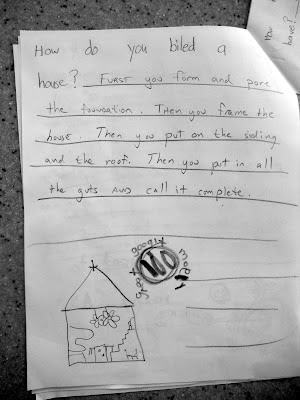 How do you biled a
house? Furst you form and pore
the foundation. Then you frame the
house. Then you put on the siding
and the roof. Then you put in all
the guts AND call it complete.
great googly moogly
how
have?